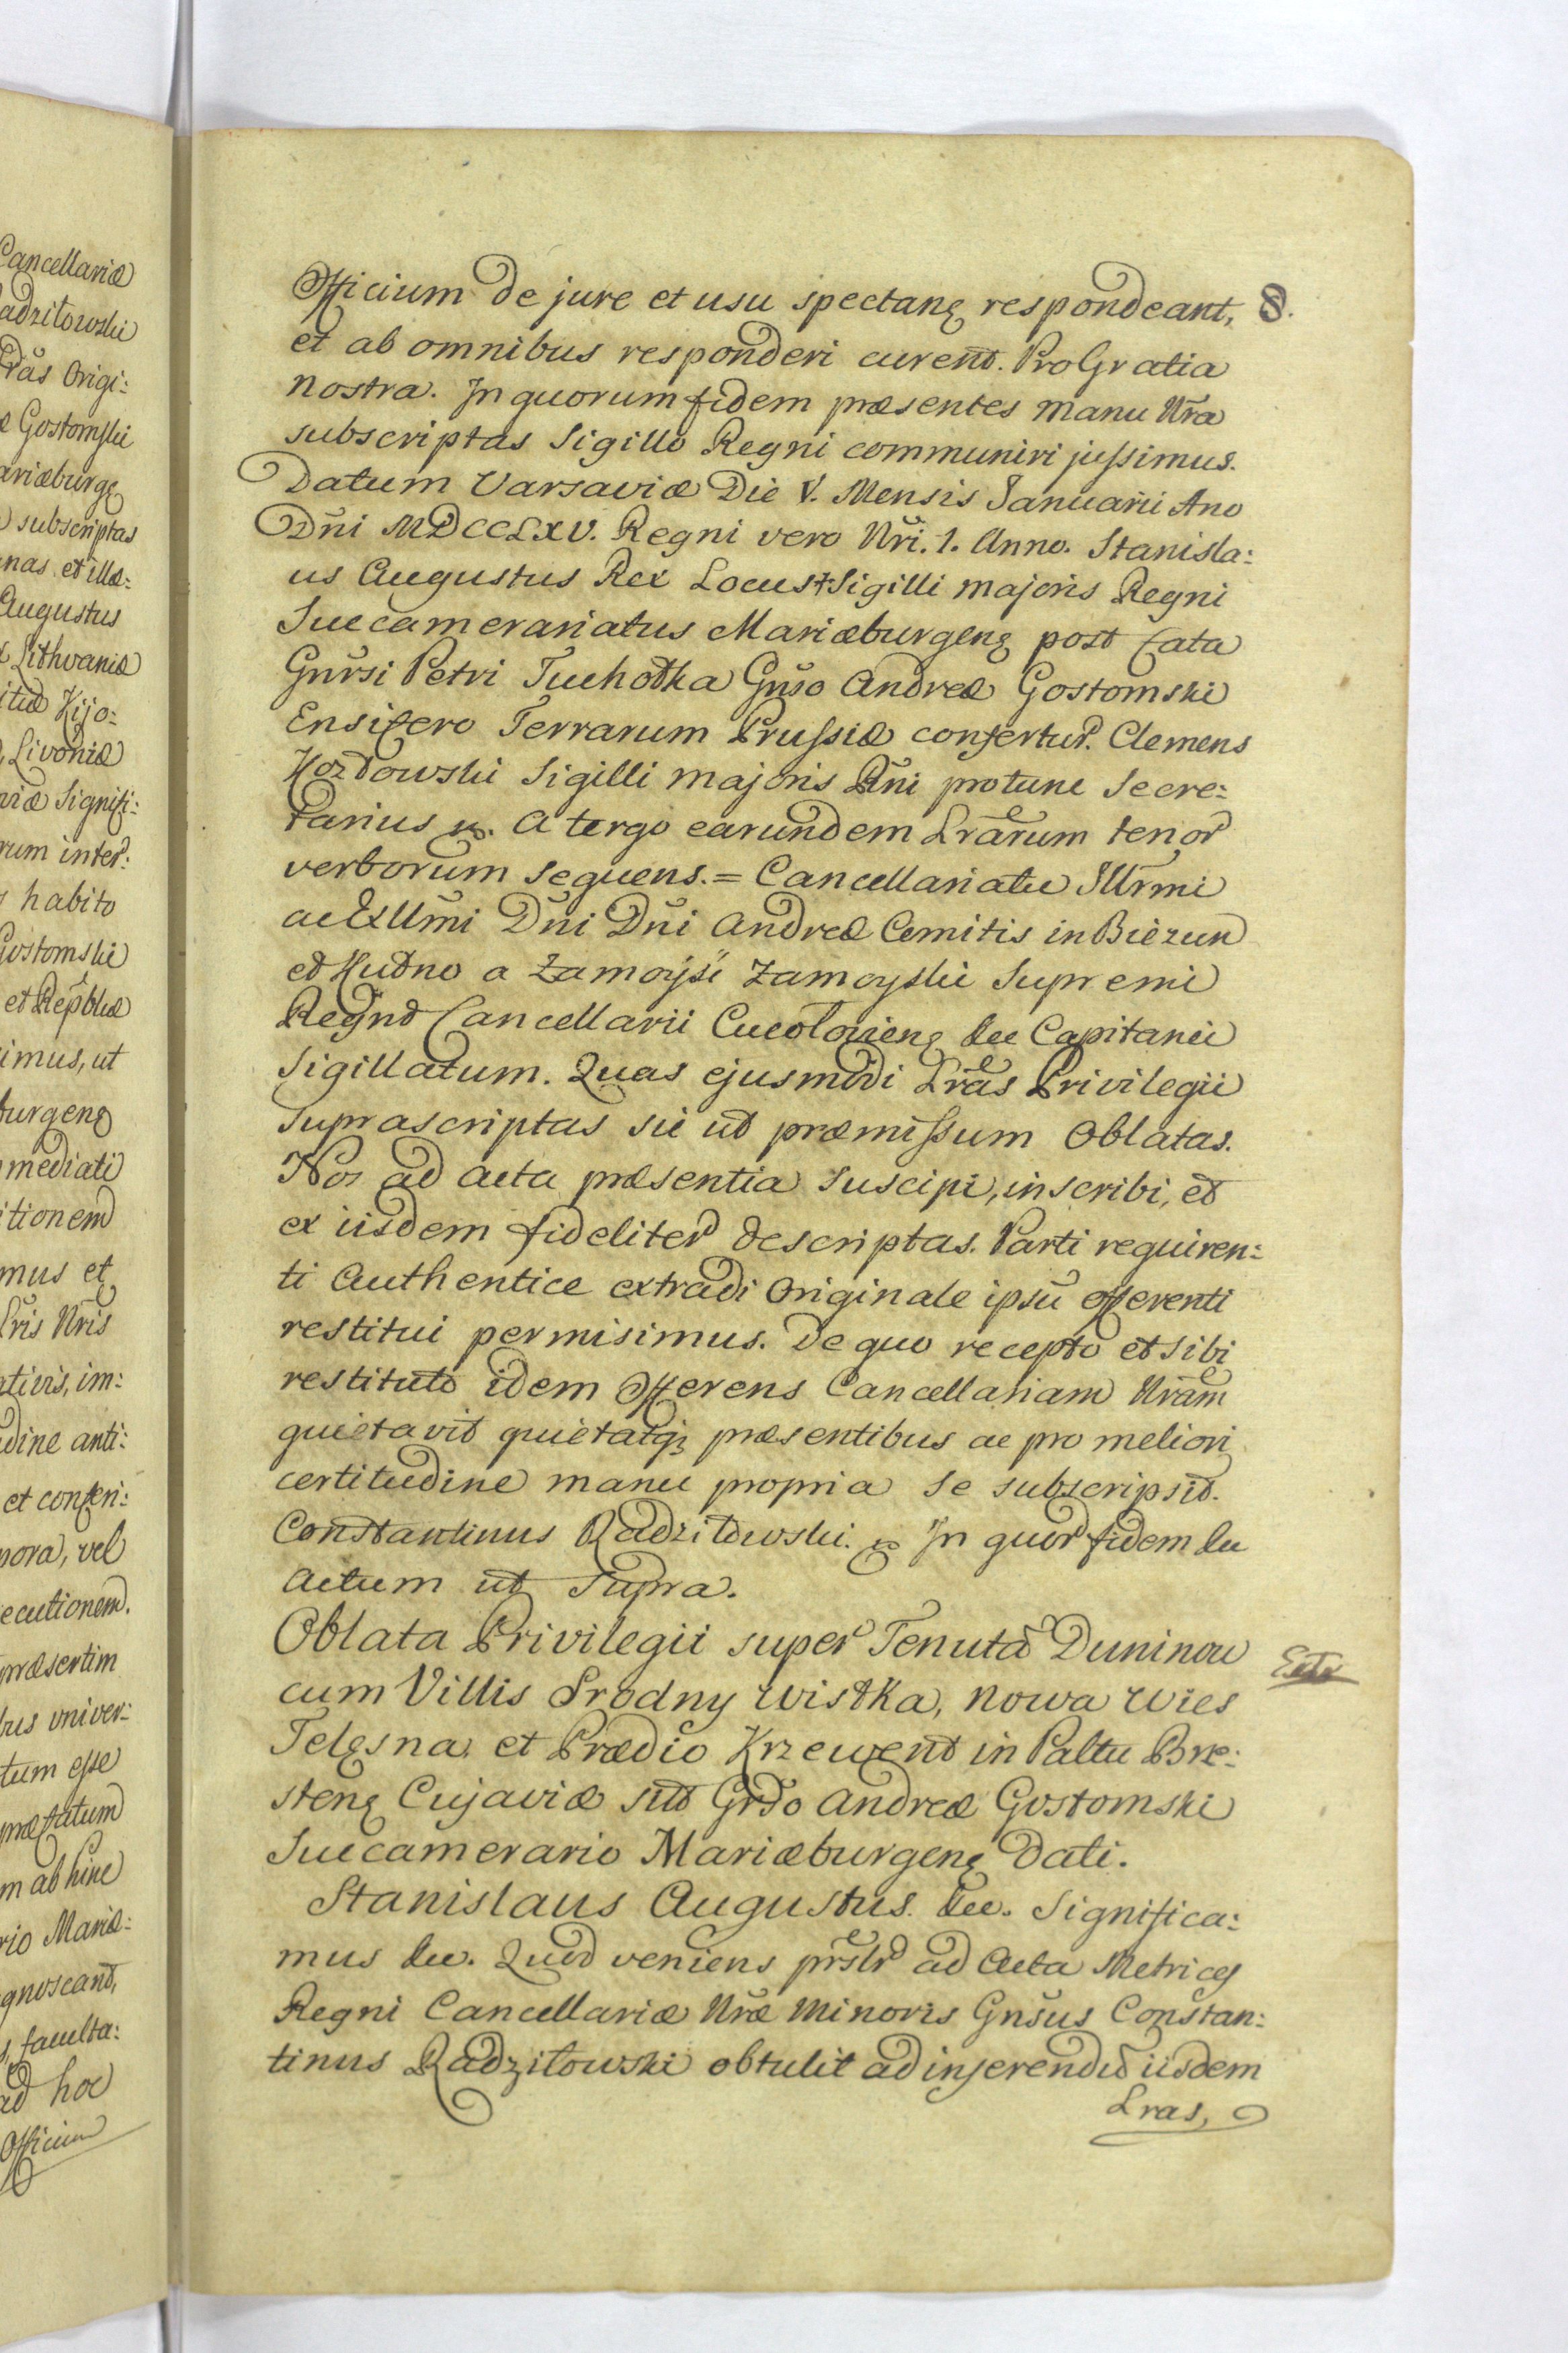 Cancellariæ
adziłowski
Lrãs Origi:
æ Gostomski
ariæburgẽ
subscriptas
nas et illæ:
Augustus
Lithvaniæ
Kijo:
Livoniæ
viæ Signifi:
rum inter:
habito
Gostomski
et Repblicæ
imus, ut
burgenẽ
mediati
itionem
mus et
Lris Nris
im:
udine anti:
et conferi:
nora, vel
ecutionem.
præsertim
bus univer:
tum esse
præfatum
m ab hinc
rio Mariæ:
gnoscant,
s, faculta:
ad hoc
Officium
Officium de jure et usu spectanẽ respondeant, 8.
et ab omnibus responderi curent. Pro Gratia
nostra. In quorum fidem præsentes manu Nrã
subscriptas Sigillo Regni communiri jussimus.
Datum Varsaviæ Die V. Mensis Januarii Ano
Dñi MDCCLXV. Regni vero Nri. 1. Anno. Stanisla:
us Augustus Rex Locus + Sigilli majoris Regni
Succamerariatus Mariæburgenẽ post fata
Gnrsi Petri Tuchołka Gnso Andreæ Gostomski
Ensifero Terrarum Prussiæ confertur. Clemens
Kozłowski Sigilli majoris Rñi protunc Secre:
tarius A tergo earundem Lrãrum tenor
verborum sequens. = Cancellariatu Illrmi
ac Exllmi Dñi Dñi Andreæ Comitis in Bieżuń
et Kutno a Zamoyście Zamoyski Supremi
Regni Cancellarii &c Capitanei
Sigillatum. Quas ejusmodi Lrãs Privilegii
suprascriptas sic ut præmissum Oblatas.
Nos ad acta præsentia suscipi, inscribi, et
ex iisdem fideliter descriptas. Parti requiren:
ti Authentice extradi Originale ipsũ offerenti
restitui permisimus. De quo recepto et sibi
restituto idem Offerens Cancellariam Nrãm
quietavit quietatq̃ præsentibus ac pro meliori
certitudine manu propria se subscripsit.
Constantinus Radziłowski. In quor fidem &c
Actum ut Supra.
Oblata Privilegii super Tenutã Duninow
cum Villis Srodny Wistka, Nowa Wies
Telęsna, et Prædio Krzewent in Paltu Bre:
stenẽ Cujaviæ Grdo Andreæ Gostomski
Succamerario Mariæburgenẽ Dati.
Stanislaus Augustus &c. Significa:
mus &c. Quod veniens prslr ad Acta Metrices
Regni Cancellariæ Nræ Minoris Gnsus Constan:
tinus Radziłowski obtulit ad inserendũ iisdem
Lras,